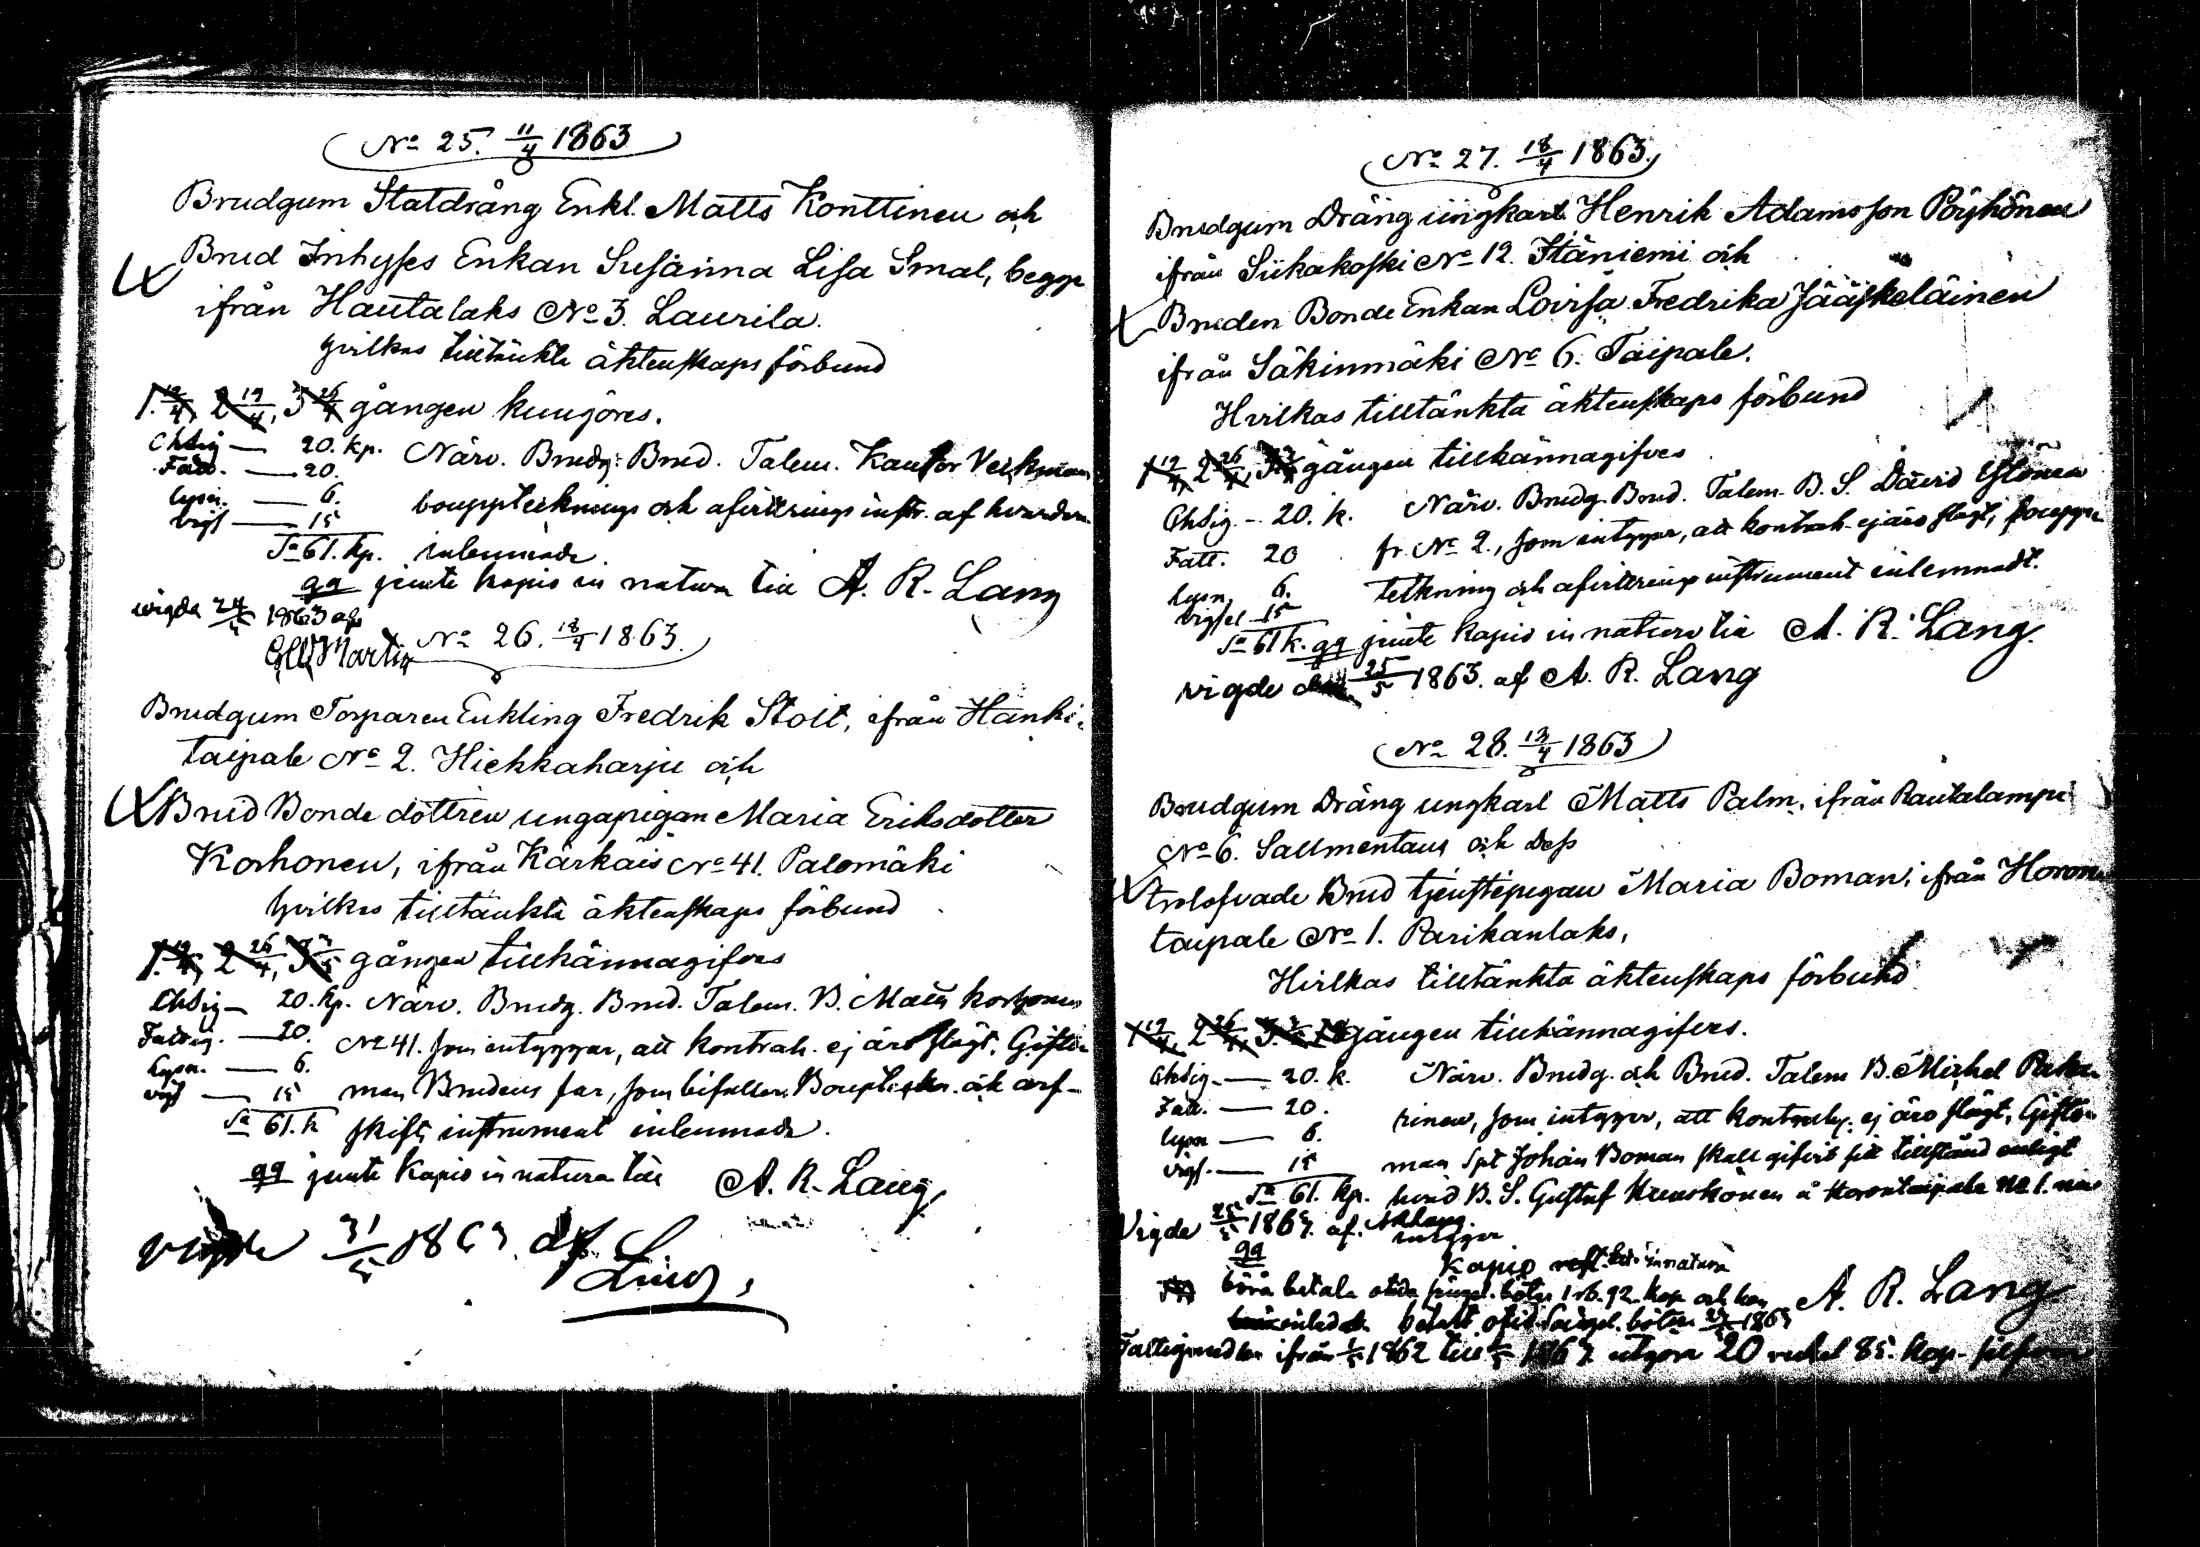 No 25. 11/4 1863
Brudgum Statdräng Enkl. Matts Konttinen och
Brud Inhyses Enkan Susanna Lisa Smal, begge
ifrån Hautalaks No 3. Laurila.
hvilkas tilltänkta äktenskaps förbund
1. 12/4, 2 19/4, 3 26/4 gången kungöres.
20. kp. Närv. Brudg. Brud. Talem. Kantor
Fatt. — 20.
lysn. — 6. bouppteknings och afvittrings instr. af
vigs — 15
Sa 61. kp. inlemnade.
qq jemte kapio in natura till A. R. Lang
wigda 1863 af
Martin
No 26. 18/4 1863.
Brudgum Torparen Enkling Fredrik Stolt, ifrån Hanki-
taipale No 2. Hiekkaharju och
Brud Bonde dottren unga pigan Maria Eriksdotter
Korhonen, ifrån Kärkäis No 41. Palomäki
hvilkas tilltänkta äktenskaps förbund
1. 19/4, 2 26/4, 3 3/5 gången tillkännagifves
20. kp. Närv. Brudg. Brud. Talem. B. Matts Korhonen
Fattig. — 20. No 41. som intygar, att kontrah. ej äro slägt. Gifto-
Lysn. — 6.
vigs — 15 man Brudens far, som bifaller. och arf-
Sa 61. k skifts instrument inlemnade.
qq jemte Kapio in natura till A. R. Lang
vigde 31/5 1863. af
No 27. 18/4 1863.
Brudgum Dräng ungkarl Henrik Adamsson Pöyhönen
ifrån Siikakoski No 12. Itäniemi och
Bruden Bonde Enkan Lovisa Fredrika Jääskeläinen
ifrån Säkinmäki No 6. Taipale.
Hvilkas tilltänkta äktenskaps förbund
1 19/4, 2 26/4, 3 gången tillkännagifves
20. k. Närv. Brudg. Brud. Talem. B. S. David Ylönen
Fatt. 20 fr. No 2., som intygar, att kontrah. ej äro slägt,
lysn. 6. tekning och afvittrings instrument inlemnadt.
vigsel 15
Sa 61 k. qq jemte kapio in natura till A. R. Lang.
vigde 25/5 1863. af A. R. Lang
No 28. 13/4 1863
Brudgum Dräng ungkarl Matts Palm, ifrån Rautalampi
No 6. Sallmentaus och Dess
trolofvade Brud tjenstepigan Maria Boman, ifrån
taipale No 1. Parikanlaks,
Hvilkas tilltänkta äktenskaps förbund
1 19/4, 2 26/4, 3. gången tillkännagifves.
20. k. Närv. Brudg. och Brud. Talem B. Mickel
Fatt. — 20. rinen, som intygar, att kontrah. ej äro slägt, Gifto-
lysn — 6.
vigs. — 15 man Johan Boman skall gifvit sitt tillstånd enligt
Sa 61. kp. B. S. Gustaf
Vigde 25/5 1863. af.
intygar
qq
Kapio in natura
böra betala otida sängel. böter 1 rb. 92. kop och A. R. Lang
betalt otid. sängel. böter 1863
ifrån 1862 till 1863. utgöra 20 rubel 85. kop.